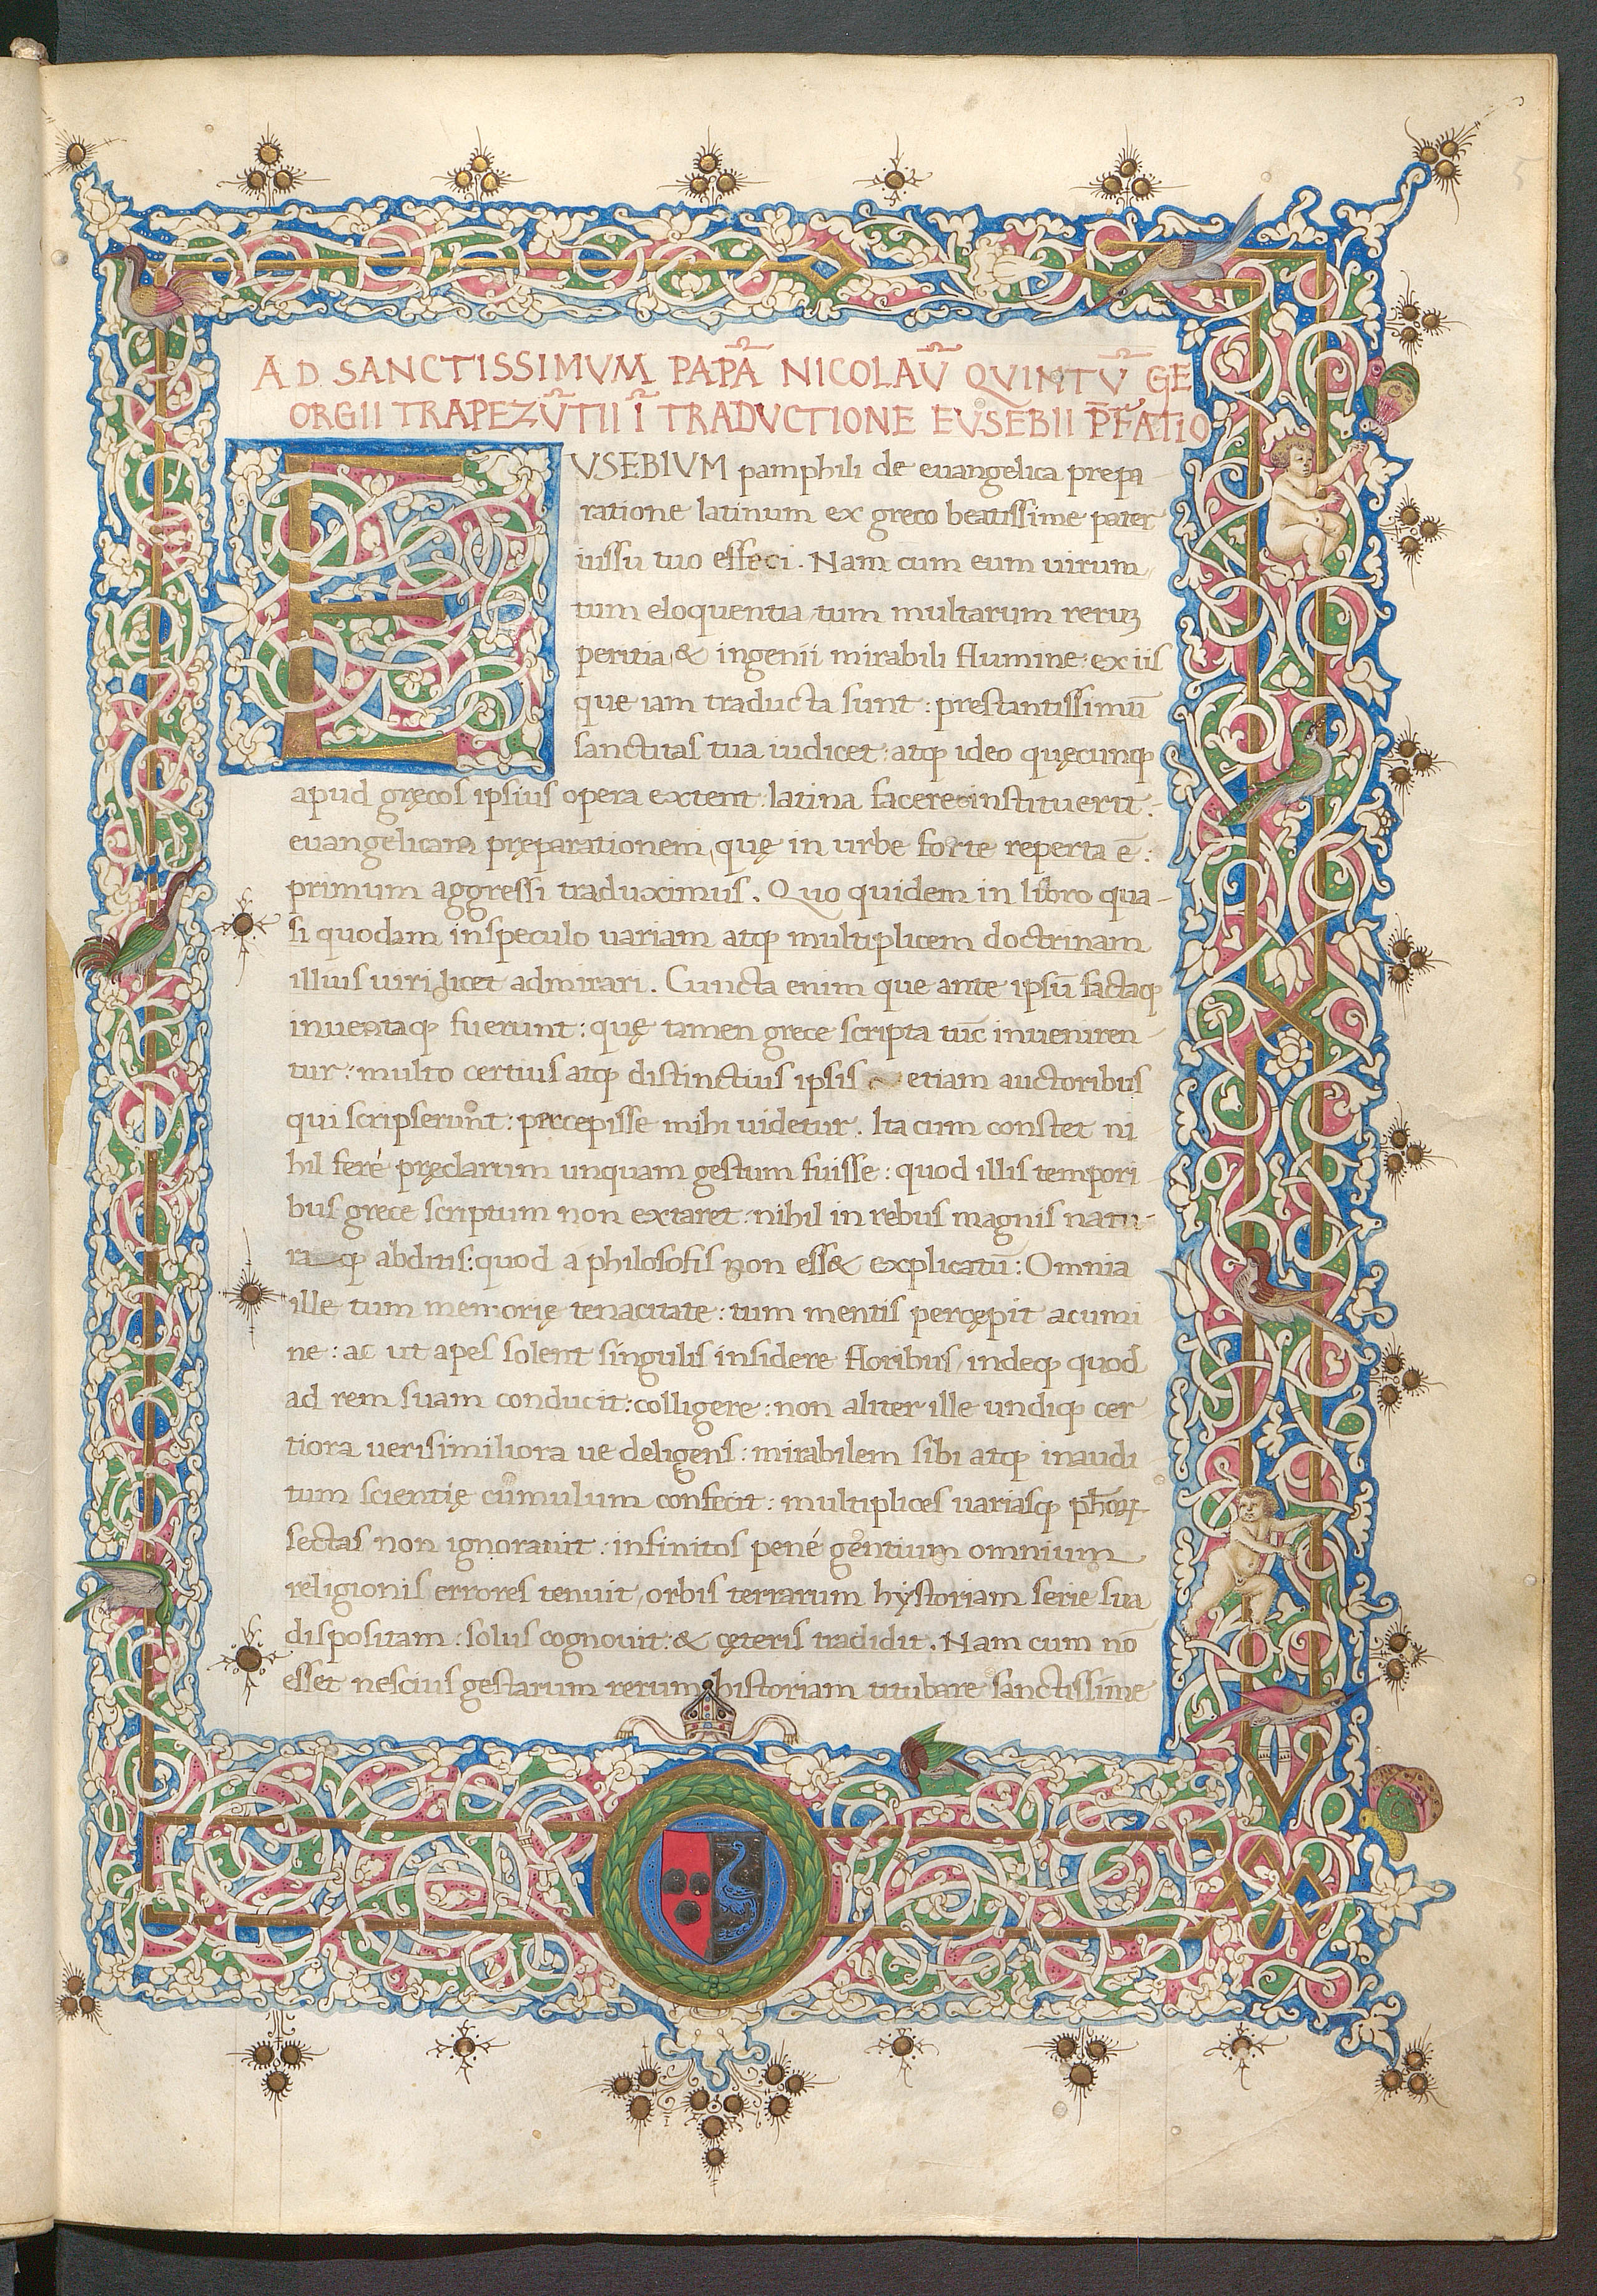 AD SANCTISSIMVM PAPĀ NICOLAV̄ QVINTV̄ GE
ORGII TRAPEZV̄TII Ī TRADVCTIONE EVSEBII P̄FATIO
EVSEBIVM pamphili de euangelica prepa-
ratione latinum ex greco beatissime pater
iussu tuo effeci. Nam cum eum uirum
tum eloquentia, tum multarum reruꝫ
peritia, & ingenii mirabili flumine: ex iis
que iam traducta sunt: prestantissimū
sanctitas tua iudicet: atqꝫ ideo quęcunqꝫ
apud gręcos ipsius opera extent: latina facere instituerit:
euangelicam pręparationem, quę in urbe forte reperta ē:
primum aggressi traduximus. Quo quidem in libro qua-
si quodam in speculo uariam atqꝫ multiplicem doctrinam
illius uiri licet admirari. Cuncta enim que ante ipsū factaqꝫ
inuentaqꝫ fuerunt: quę tamen grece scripta tūc inueniren-
tur: multo certius atqꝫ distinctius ipsis etiam auctoribus
qui scripserunt: percepisse mihi uidetur. Ita cum constet ni
hil feré pręclarum unquam gestum fuisse: quod illis tempori
bus grece scriptum non extaret: nihil in rebus magnis natu-
raqꝫ abditis: quod a philosofis non ess& explicatū: Omnia
ille tum memorię tenacitate: tum mentis percępit acumi
ne: ac ut apes solent singulis insidere floribus, indeqꝫ quod
ad rem suam conducit: colligere: non aliter ille undiqꝫ cer
tiora uerisimiliora ue deligens: mirabilem sibi atqꝫ inaudi
tum scientię cumulum confecit: multiplices uariasqꝫ ph̄oꝝ
sectas non ignorauit: infinitos pené gentium omnium
religionis errores tenuit, orbis terrarum hystoriam serie sua
dispositam: solus cognouit: & cęteris tradidit. Nam cum nō
esset nescius gestarum rerum historiam titubare sanctissime